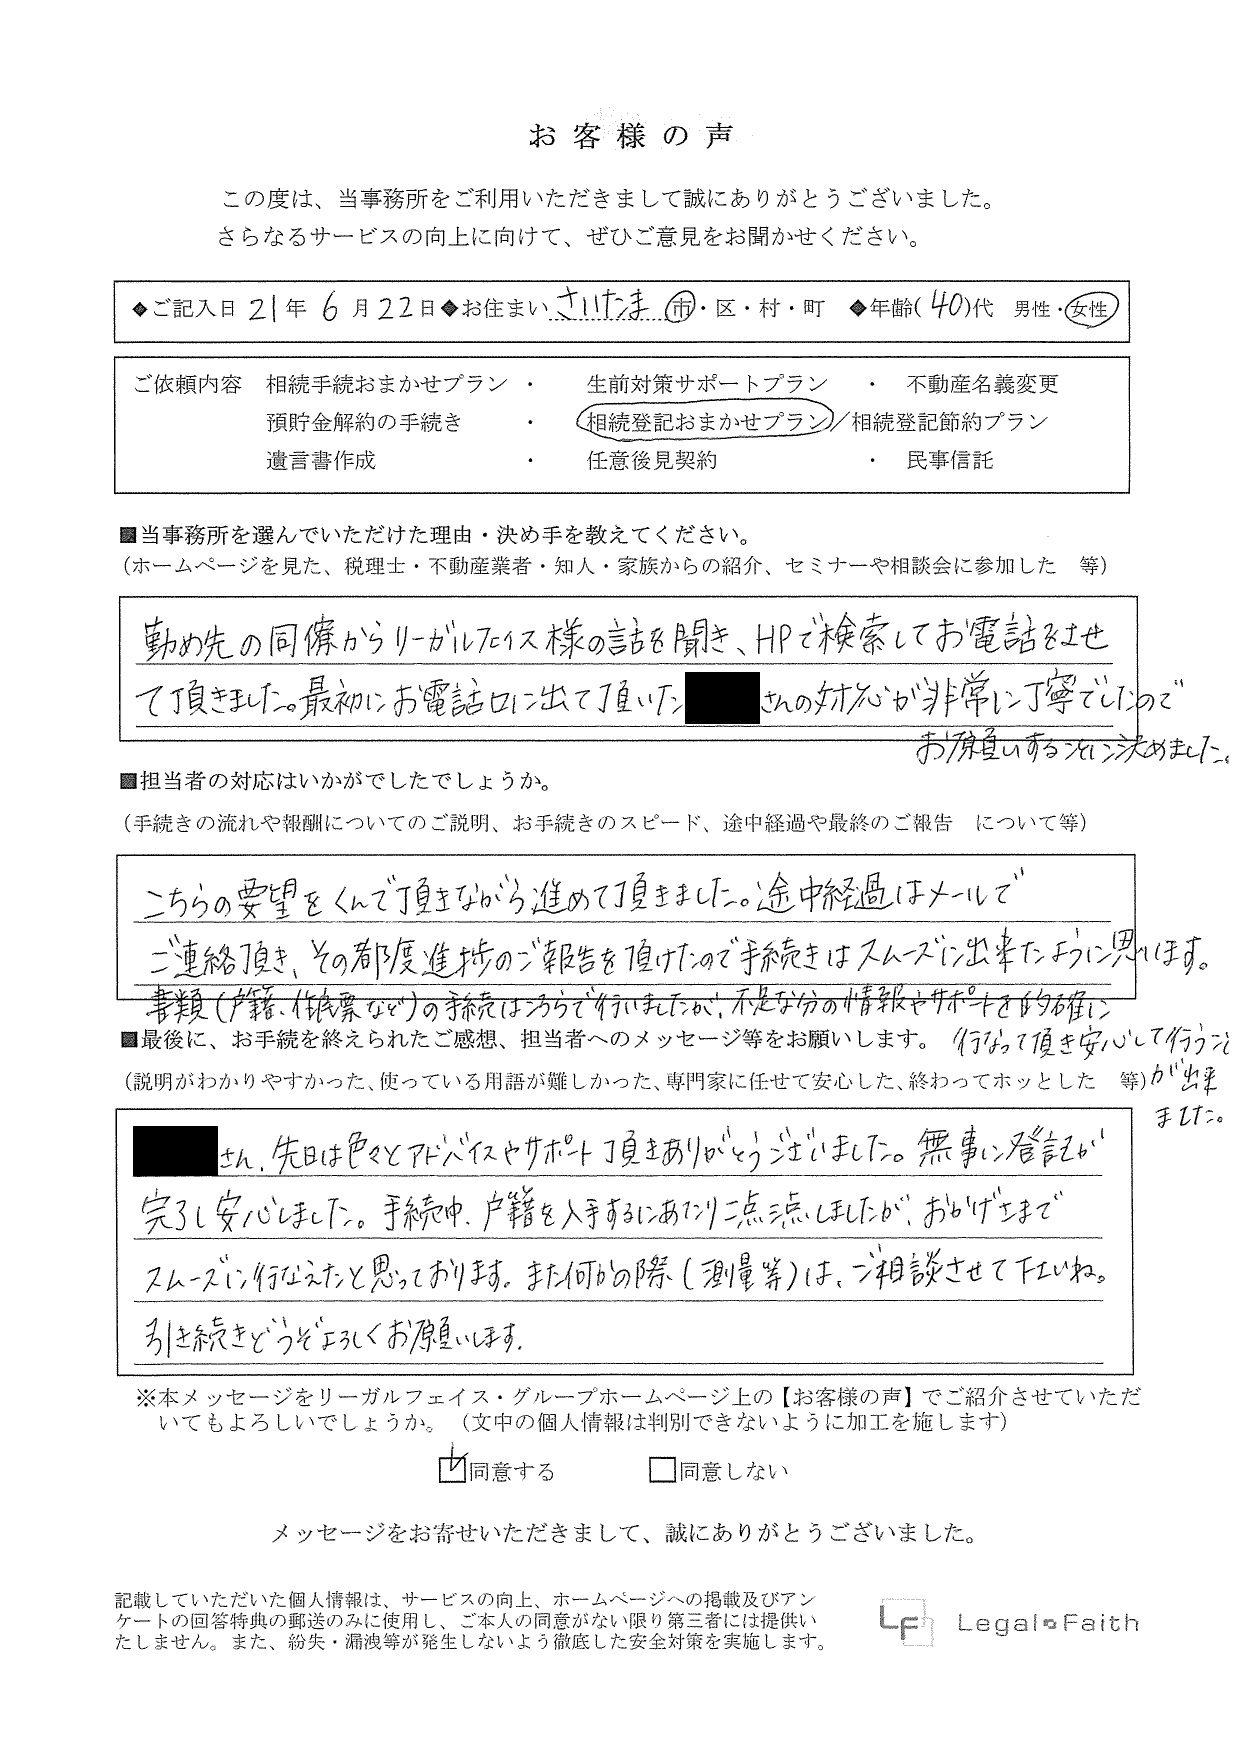 お客様の声
この度は、当事務所をご利用いただきまして誠にありがとうございました。
さらなるサービスの向上に向けて、ぜひご意見をお聞かせください。
◆ご記入日 21年 6月22日◆お住まい さいたま 市・区・村・町 ◆年齢(40)代 男性・女性
ご依頼内容 相続手続おまかせプラン ・ 生前対策サポートプラン ・ 不動産名義変更
預貯金解約の手続き ・ 相続登記おまかせプラン/相続登記節約プラン
遺言書作成 ・ 任意後見契約 ・ 民事信託
■当事務所を選んでいただけた理由・決め手を教えてください。
(ホームページを見た、税理士・不動産業者・知人・家族からの紹介、セミナーや相談会に参加した 等)
勤め先の同僚からリーガルフェイス様の話を聞き、HPで検索してお電話をさせ
て頂きました。最初にお電話口に出て頂いた さんの対応が非常に丁寧でしたので
お願いすることに決めました。
■担当者の対応はいかがでしたでしょうか。
(手続きの流れや報酬についてのご説明、お手続きのスピード、途中経過や最終のご報告 について等)
こちらの要望をくんで頂きながら進めて頂きました。途中経過はメールで
ご連絡頂き、その都度進捗のご報告を頂けたので手続きはスムーズに出来たように思います。
書類(戸籍、住民票など)の手続はこちらで行いましたが、不足な分の情報やサポートを的確に
行なって頂き安心して行うこと
が出来
ました。
■最後に、お手続を終えられたご感想、担当者へのメッセージ等をお願いします。
(説明がわかりやすかった、使っている用語が難しかった、専門家に任せて安心した、終わってホッとした 等)
さん、先日は色々とアドバイスやサポート頂きありがとうございました。無事に登記が
完了し安心しました。手続中、戸籍を入手するにあたり二点三点しましたが、おかげさまで
スムーズに行なえたと思っております。また何かの際(測量等)は、ご相談させて下さいね。
引き続きどうぞよろしくお願いします。
※本メッセージをリーガルフェイス・グループホームページ上の【お客様の声】でご紹介させていただ
いてもよろしいでしょうか。(文中の個人情報は判別できないように加工を施します)
☑同意する □同意しない
メッセージをお寄せいただきまして、誠にありがとうございました。
記載していただいた個人情報は、サービスの向上、ホームページへの掲載及びアン
ケートの回答特典の郵送のみに使用し、ご本人の同意がない限り第三者には提供い
たしません。また、紛失・漏洩等が発生しないよう徹底した安全対策を実施します。
LF Legal Faith